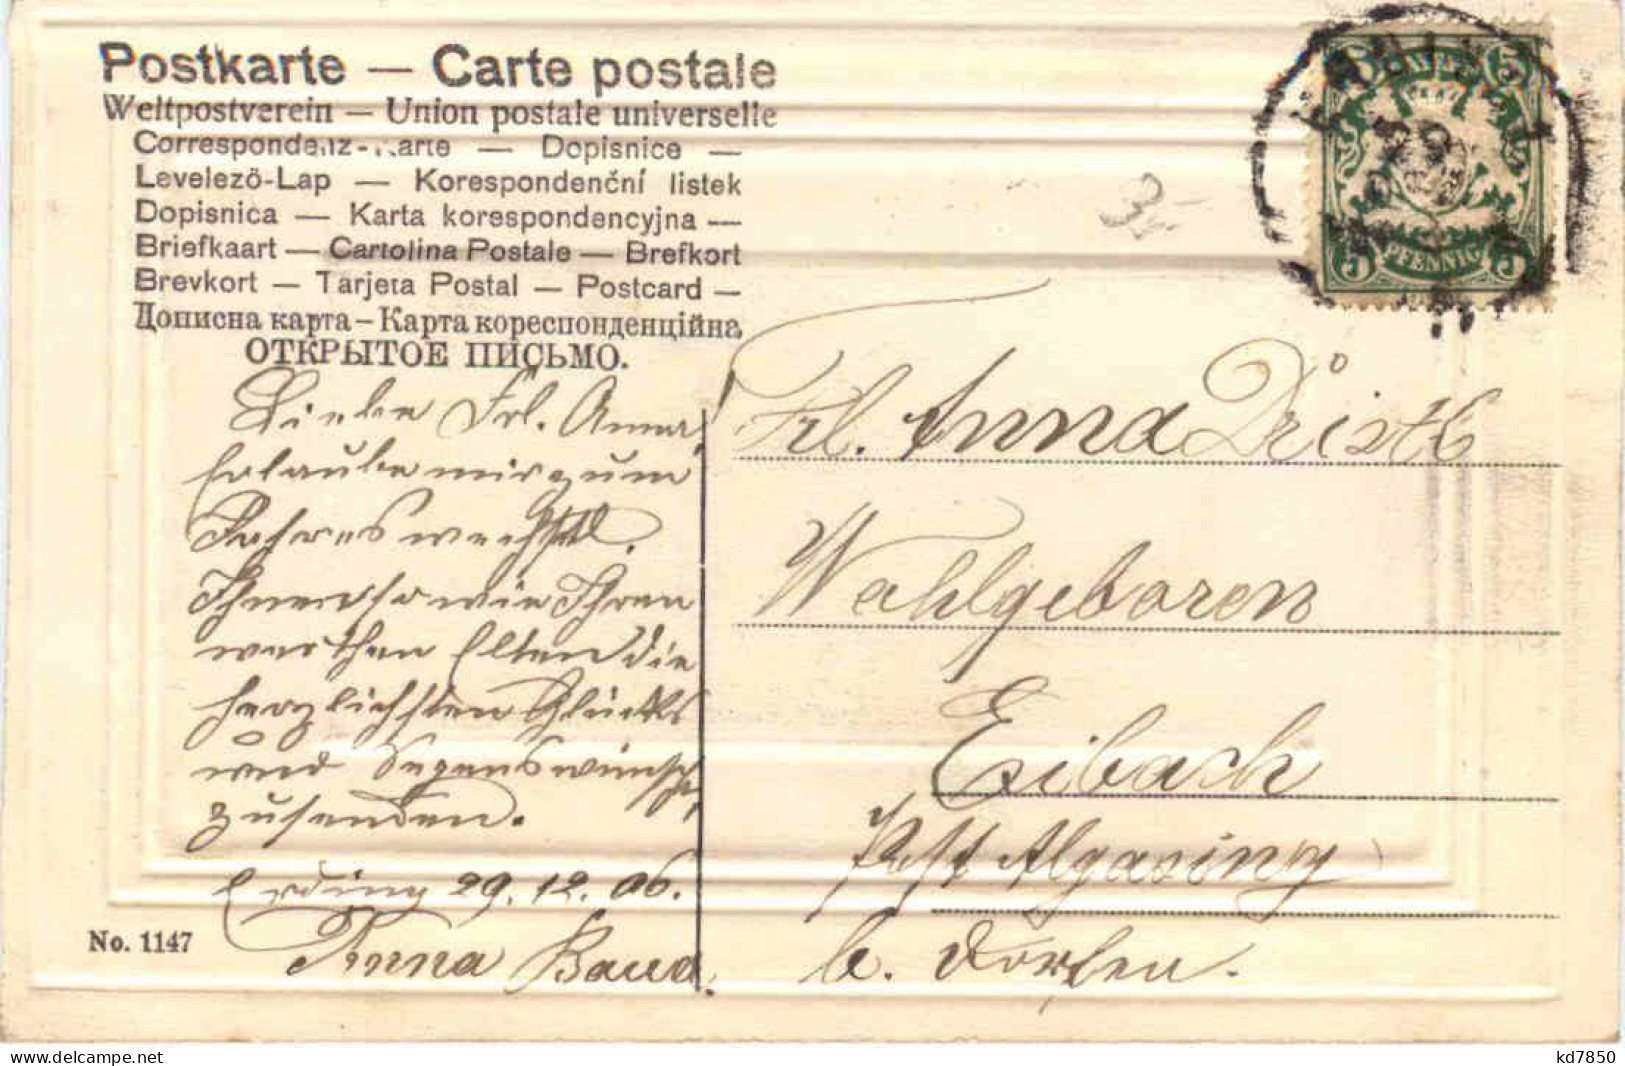 Postkarte — Carte postale
Weltpostverein — Union postale universelle
Correspondenz-Karte — Dopisnice —
Levelezö-Lap — Korespondenční listek
Dopisnica — Karta korespondencyjna —
Briefkaart — Cartolina Postale — Brefkort
Brevkort — Tarjeta Postal — Postcard —
Дописна карта – Карта кореспонденційна
ОТКРЫТОЕ ПИСЬМО.
Liebe Frl. Anna!
Erlaube mir zum
Jahreswechsel
Ihnen so wie Ihren
werthen Elten die
herzlichsten Glücks
und Segenswünsche
zusenden.
Erding 29.12.06.
Anna Baud.
No. 1147
3.-
5 BAYERN 5
5 PFENNIG 5
Frl. Anna Dristl
Wohlgeboren
Eibach
Post Algasing
b. Dorfen.
kd7850
delcampe.net